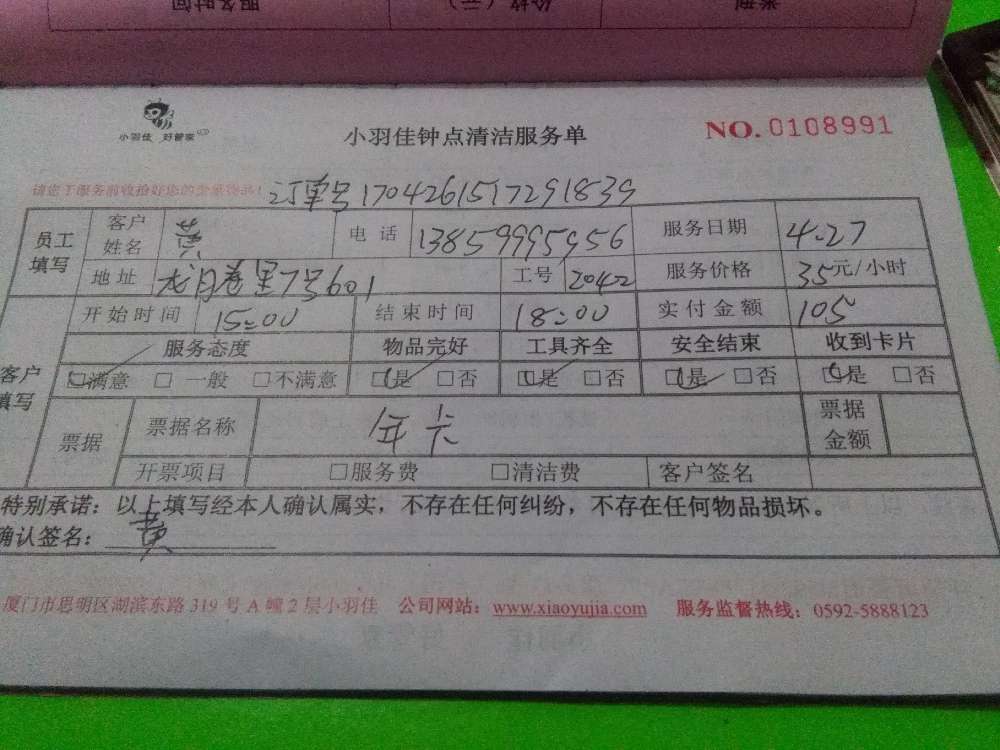 服务时间 价格（元） 类别
小羽佳 好管家
小羽佳钟点清洁服务单
NO.0108991
请您于服务前收拾好您的贵重物品！
订单号1704261517291839
员工填写 客户姓名 黄 电话 13859995956 服务日期 4.27
地址 龙月巷里7号601 工号 2042 服务价格 35元/小时
开始时间 15:00 结束时间 18:00 实付金额 105
客户填写 服务态度 物品完好 工具齐全 安全结束 收到卡片
□满意 □一般 □不满意 □是 □否 □是 □否 □是 □否 □是 □否
票据 票据名称 年卡 票据金额
开票项目 □服务费 □清洁费 客户签名
特别承诺：以上填写经本人确认属实，不存在任何纠纷，不存在任何物品损坏。
确认签名：黄
厦门市思明区湖滨东路319号A幢2层小羽佳 公司网站：www.xiaoyujia.com 服务监督热线：0592-5888123